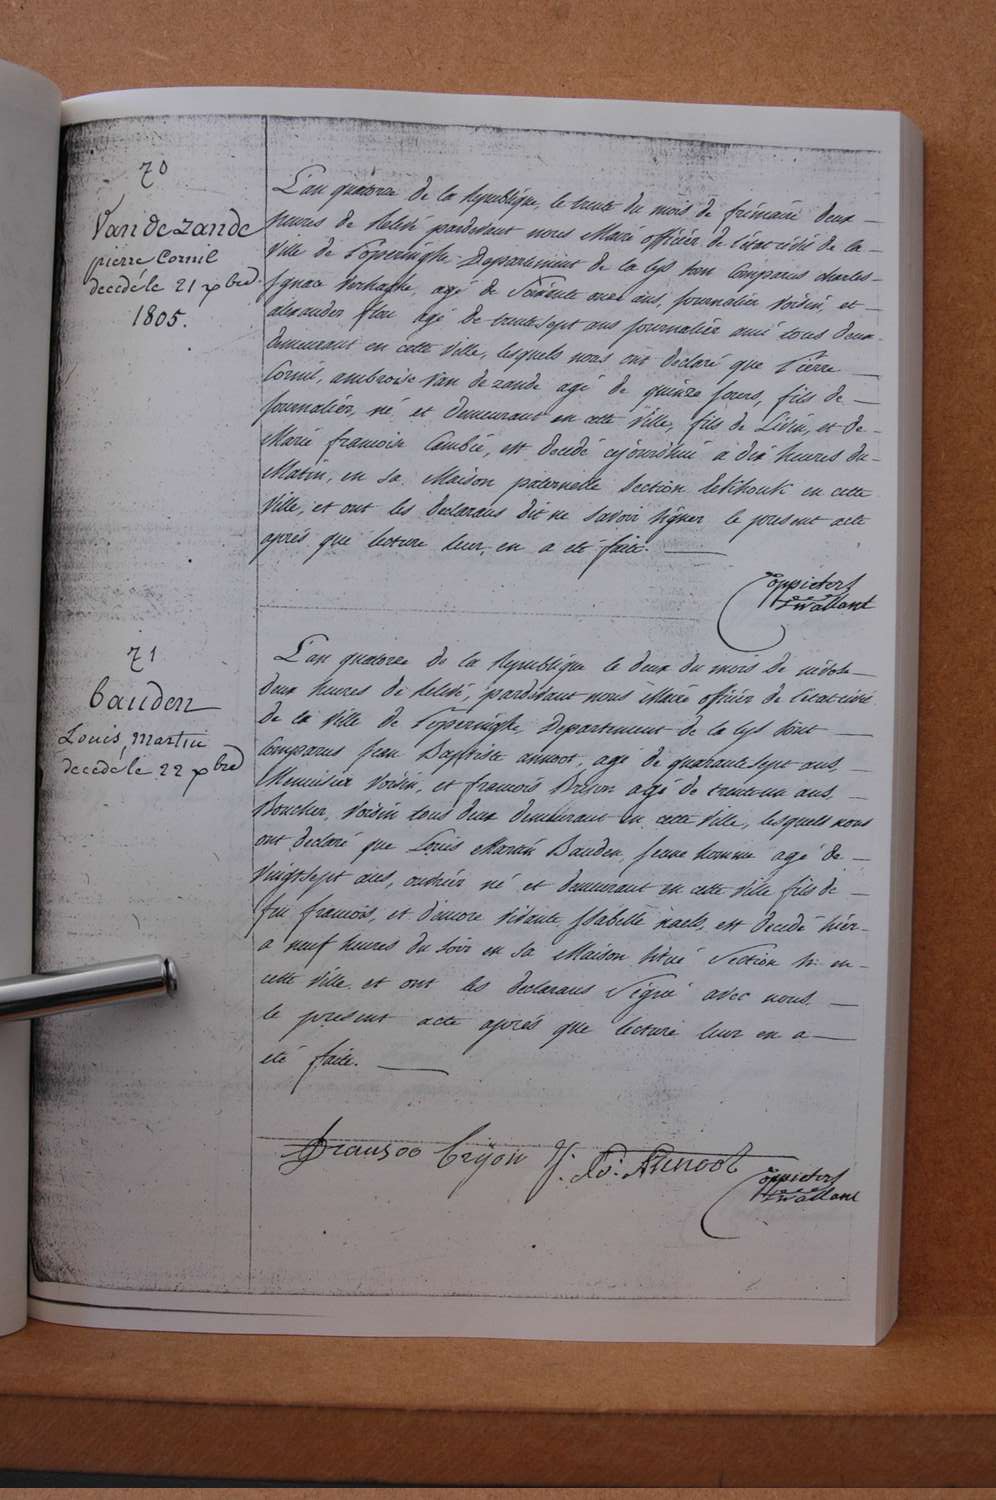 70
Van de zande
pierre Cornil
decédé le 21 xbre
1805.
L'an quatorze de la Republique, le trente du mois de frimaire deux
heures de relevé pardevant nous Maire officier de l'état civil de la
Ville de Poperinghe, Departement de la Lys sont Comparus charles
Ignace Verhaeghe, agé de Soixante ans, journalier voisin, et
alexander flou agé de trentesept ans journalier ami tous deux
demeurant en cette ville, lesquels nous ont declaré que Pierre
Cornil, ambroise Van de zande agé de quinze jours, fils de
journalier, né et demeurant en cette Ville, fils de Liévin, et de
Marie francoise Cambié, est decedé cejourd'hui a dix heures du
Matin, en sa Maison paternelle Section en cette
Ville, et ont les declarans dit ne savoir signer le present acte
après que lecture leur, en a été faite.
Coppieters
71
Bauden
Louis, Martin
decedé le 22 xbre
L'an quatorze de la Republique le deux du mois de nivôse
deux heures de relevé, pardevant nous Maire officier de l'état civil
de la Ville de Poperinghe, Departement de la Lys sont
Comparus Jean Baptiste annoot, agé de quarante sept ans,
Menuisier Voisin, et francois Brijon agé de trente un ans,
Boucher, Voisin tous deux demeurant en cette Ville, lesquels nous
ont declaré que Louis Martin Bauden, jeune homme agé de
vingtsept ans, ouvrier né et demeurant en cette Ville fils de
feu francois, et d'encore vivante Isabelle naels, est decedé hier
a neuf heures du soir en sa Maison situé Section h: en
cette Ville, et ont les declarans Signé avec nous
le present acte après que lecture leur en a
été faite.
fransoo brijon J. Bt. Annoot
Coppieters